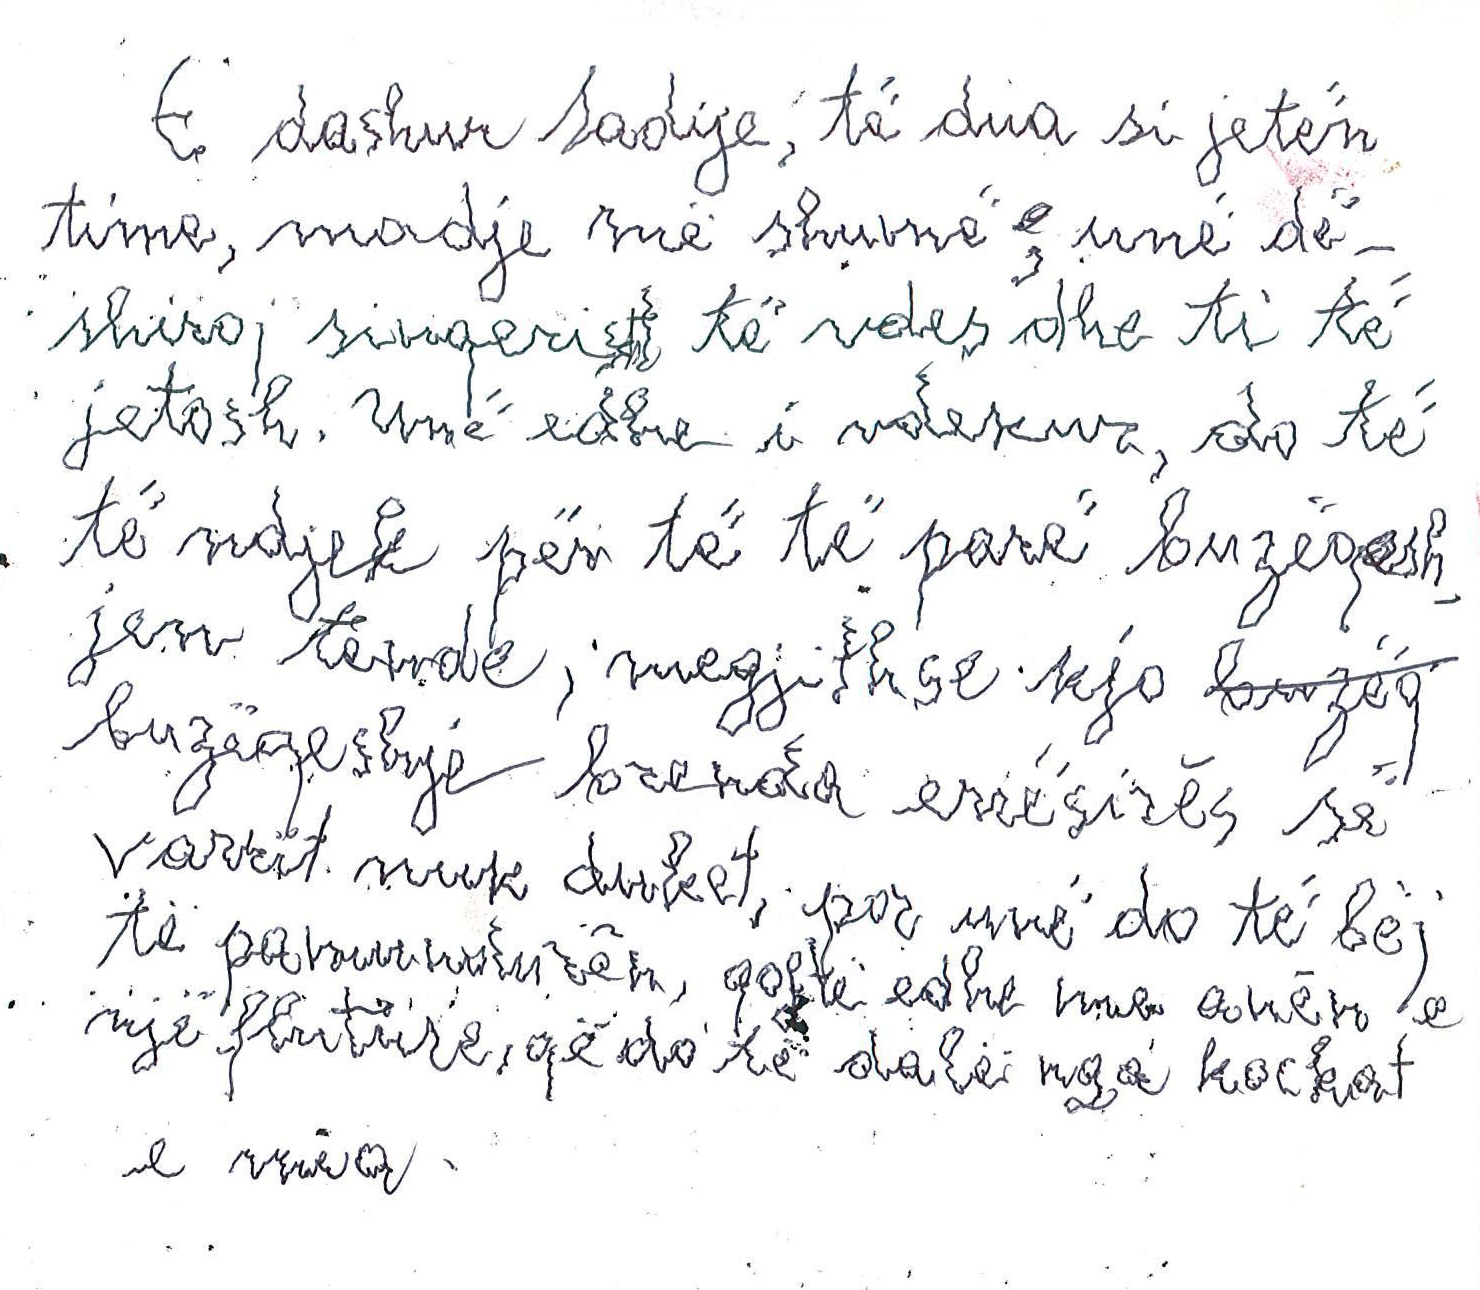 E dashur Sadije, të dua si jetën
time, madje më shumë; unë dë-
shiroj sinqerisht të vdes dhe ti të
jetosh. Unë edhe i vdekur, do të
të ndjek për të të parë buzëqesh-
jen tënde, megjithse kjo buzëq
buzëqeshje brenda errësirës së
varrit nuk duket, por unë do të bëj
të pamundurën, qoftë edhe me anën e
një fluture, që do të dalë nga kockat
e mia.